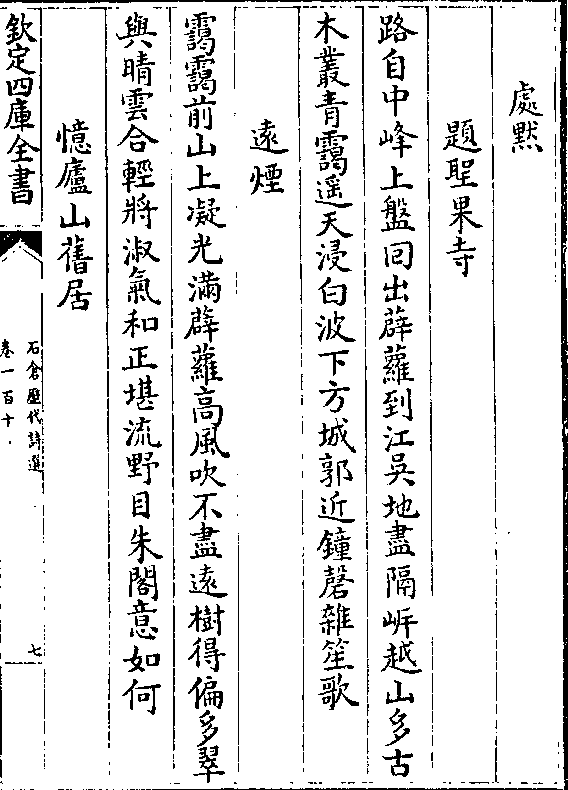 處黙
題聖果寺
路自中峰上盤回出薜蘿到江吳地盡隔岍越山多古
木叢青靄遥天浸白波下方城郭近鐘磬雜笙歌
遠煙
靄靄前山上凝光滿薜蘿高風吹不盡遠樹得偏多翠
與晴雲合輕將淑氣和正堪流野目朱閣意如何
憶廬山舊居
欽定四庫全書
石倉歷代詩選
卷一百十
七